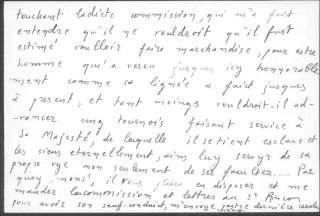 touchant ladicte commission, qui m'a faict
entendre qu'il ne vouldroit qu'il fust
estimé voulloir faire marchandise, pour estre
homme qu'a vescu jusques icy honnorable
ment comme sa lignée a faict jusques
à present, et tant moings vouldroit-il ad-
vancer ung tournois faisant service à
Sa Majesté, de laquelle il se tient esclave et
les siens eternellement, ains luy servyr de sa
propre vye non seulement de ses facultez.... Par
quoy mons^r, il vous plaira en disposer et me
mander la commission et lettres au S^r Rincon
pour avoir son sauf-conduit, m'envoye vostre dernière resolu